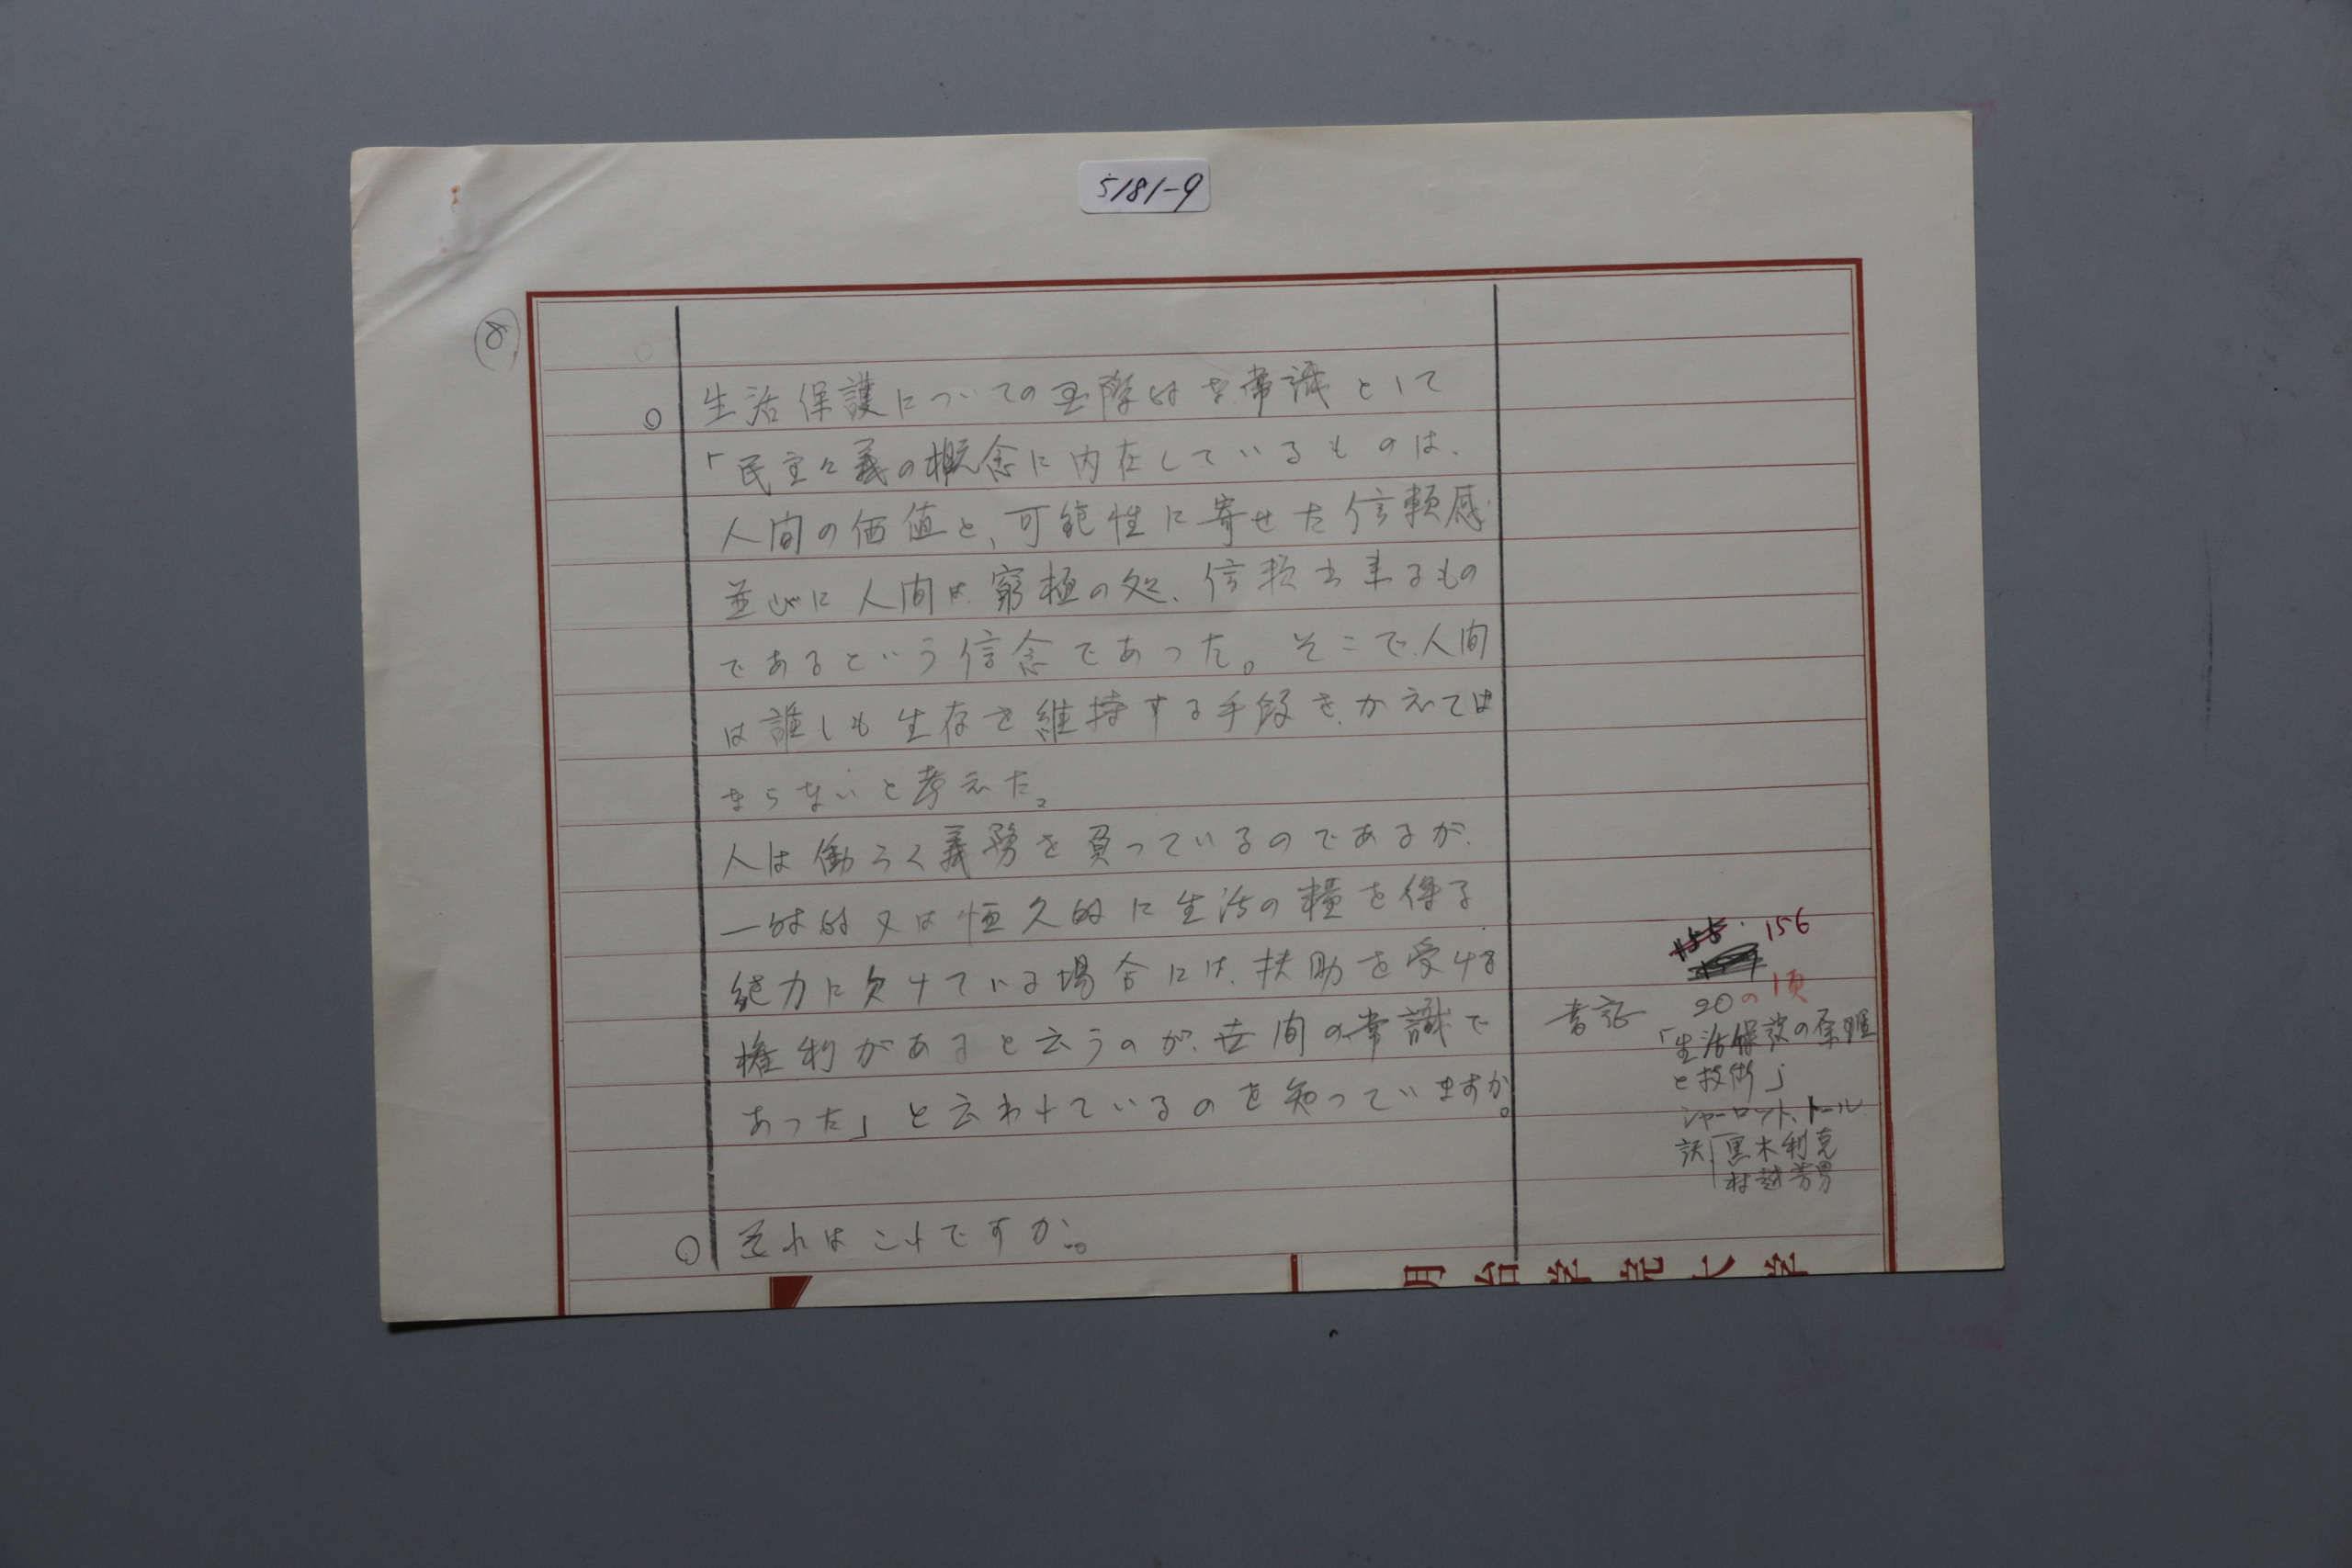 5181-9
8
生活保護についての国際的な常識として
「民主々義の概念に内在しているものは、
人間の価値と、可能性に寄せた信頼感
並びに人間は、窮極の処、信頼出来るもの
であるという信念であった。そこで、人間
は誰しも生存を維持する手段を、かいては
ならないと考えた。
人は働らく義務を負っているのであるが、
一時的又は恒久的に生活の糧を得る
能力に欠けている場合には、扶助を受ける
権利があると云うのが、世間の常識で
あった」と云われているのを知っていますか。
それはこれですか。
156
書証 20の1項
「生活保護の原理
と技術」
シャーロット、トール
訳 黒木利克
村越芳男
明治学院大学